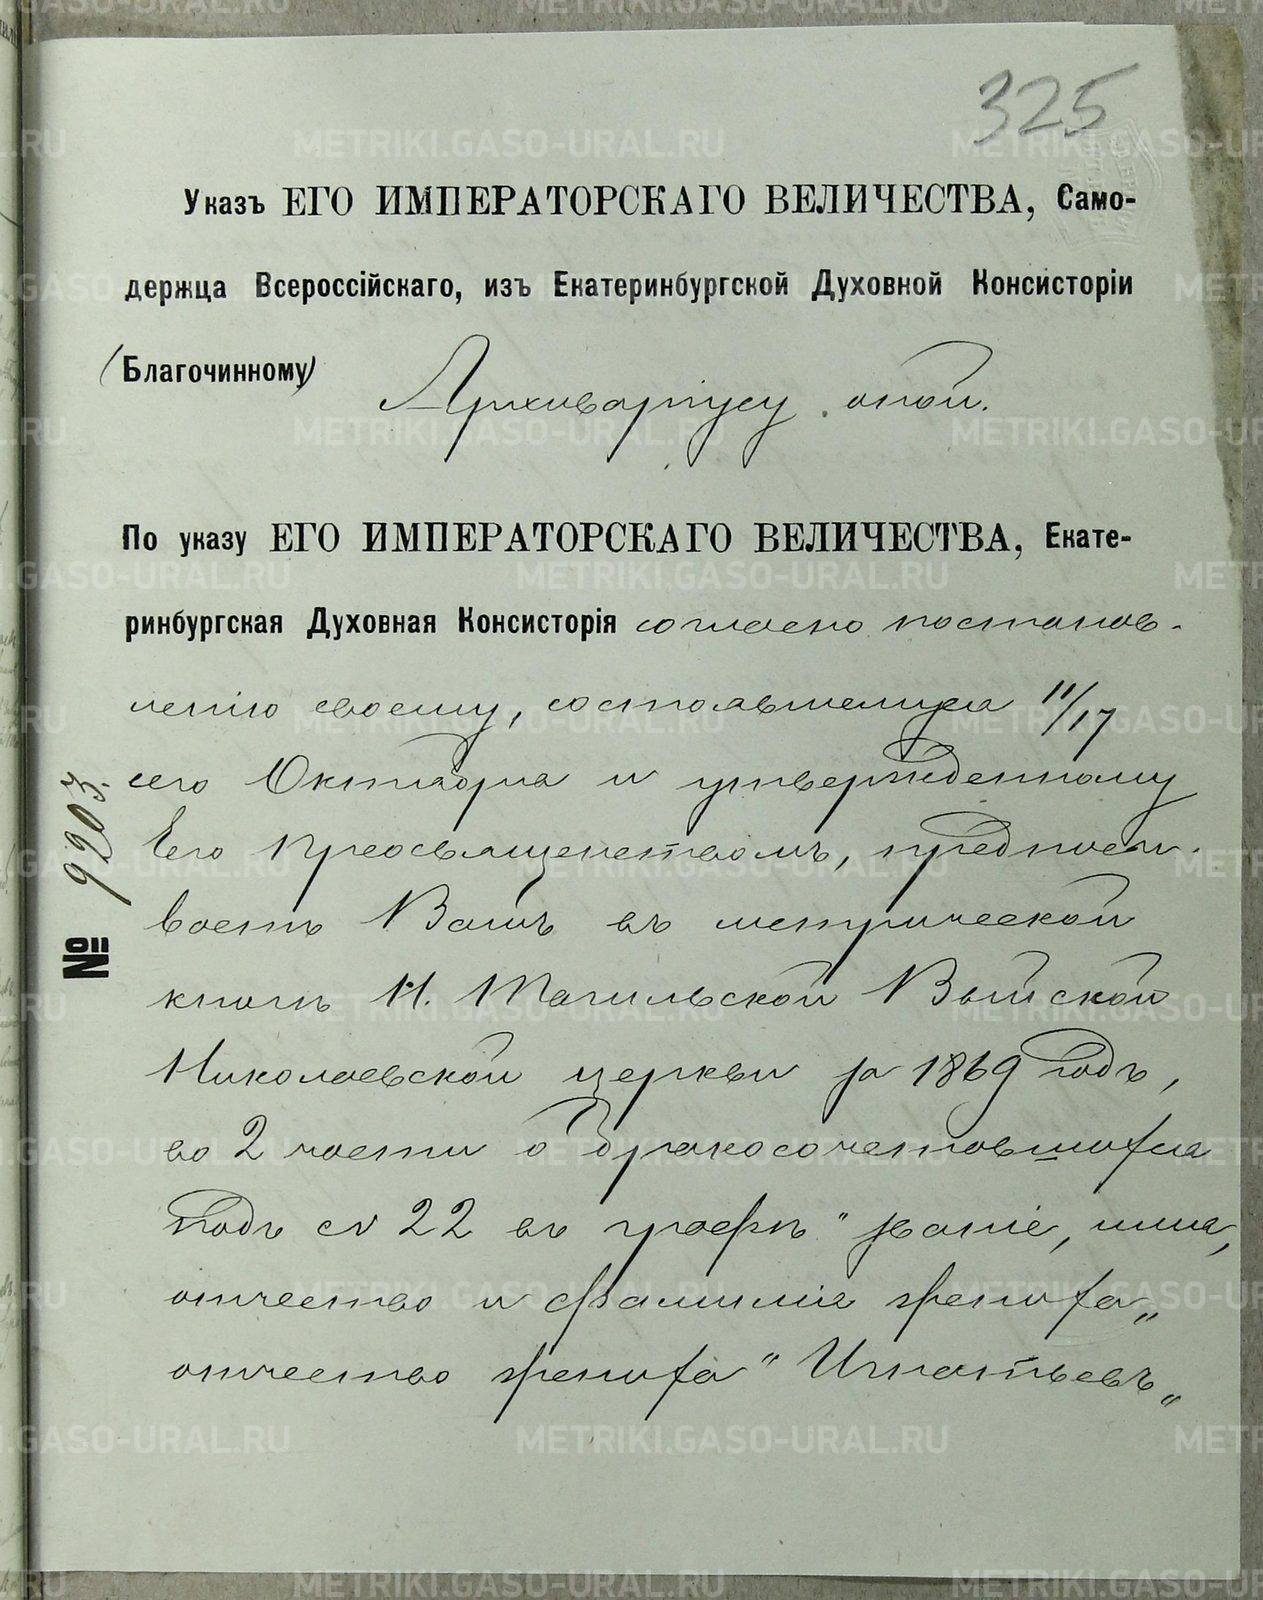 325
Указъ ЕГО ИМПЕРАТОРСКАГО ВЕЛИЧЕСТВА, Само-
держца Всероссійскаго, изъ Екатеринбургской Духовной Консисторіи
(Благочинному) Архиваріусу оной.
По указу ЕГО ИМПЕРАТОРСКАГО ВЕЛИЧЕСТВА, Екате-
ринбургская Духовная Консисторія согласно постанов-
ленію своему, состоявшемуся 11/17
сего Октября и утвержденному
Его Преосвященствомъ, предписы-
ваетъ Вамъ въ метрической
книгѣ Н. Тагильской Выйской
Николаевской церкви за 1869 годъ,
во 2 части о бракосочетавшихся
подъ № 22 въ графѣ "званіе, имя,
отчество и фамилія жениха„
отчество жениха "Игнатьевъ„
№ 9203.
METRIKI.GASO-URAL.RU